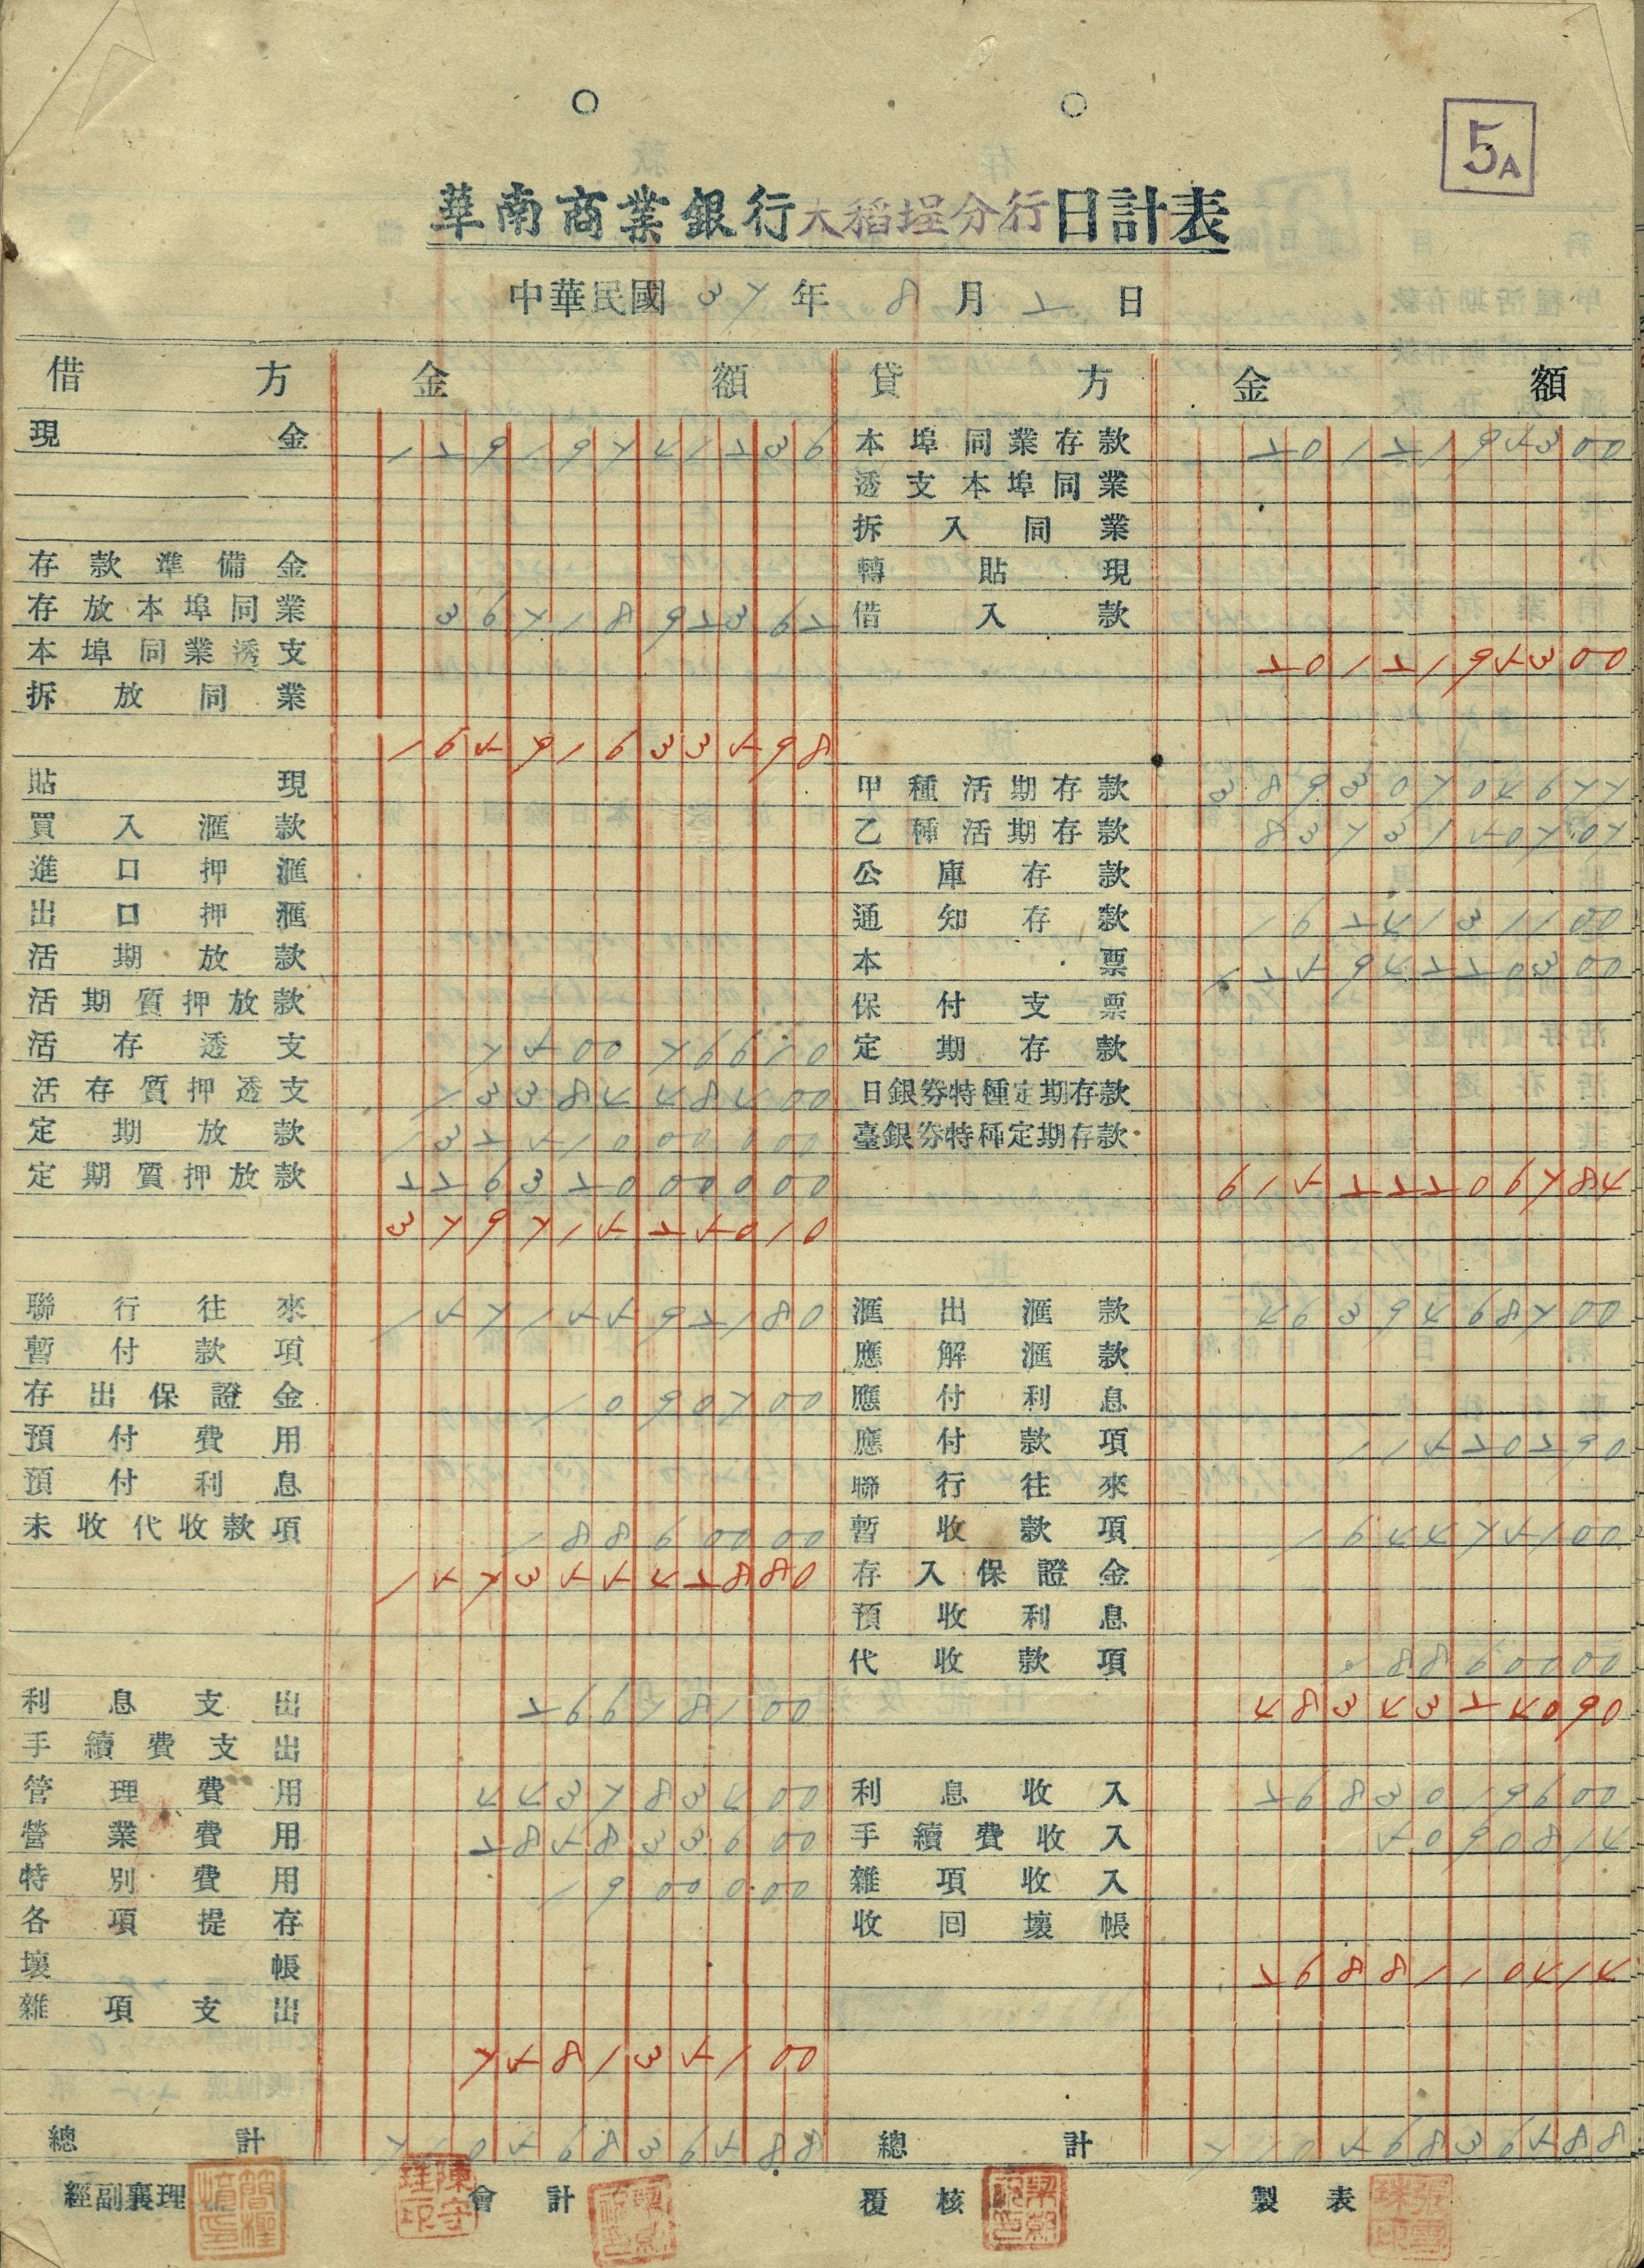 5A
華南商業銀行大稻埕分行日計表
中華民國 37 年 8 月 2 日
借方 金額 貸方 金額
現金 12919741236 本埠同業存款 2012195300
透支本埠同業
拆入同業
存款準備金 轉貼現
存放本埠同業 3671892362 借入款
本埠同業透支 2012195300
拆放同業
16591633598
貼現 甲種活期存款 38930704677
買入滙款 乙種活期存款 8373150707
進口押滙 公庫存款
出口押滙 通知存款 1624131100
活期放款 本票 12594220300
活期質押放款 保付支票
活存透支 750076610 定期存款
活存質押透支 1338448400 日銀券特種定期存款
定期放款 13251000000 臺銀券特種定期存款
定期質押放款 22632000000 61522206784
37971525010
聯行往來 15715592180 滙出滙款 4639468700
暫付款項 應解滙款
存出保證金 1090700 應付利息
預付費用 應付款項 11520290
預付利息 聯行往來
未收代收款項 18860000 暫收款項 164475100
15735542880 存入保證金
預收利息
代收款項 18860000
利息支出 26618100 4834324090
手續費支出
管理費用 443783400 利息收入 2683019600
營業費用 285833600 手續費收入 5090814
特別費用 1900000 雜項收入
各項提存 收回壞帳
壞帳 2688110414
雜項支出
758135100
總計 71056836588 總計 71056836588
經副襄理 會計 覆核 製表